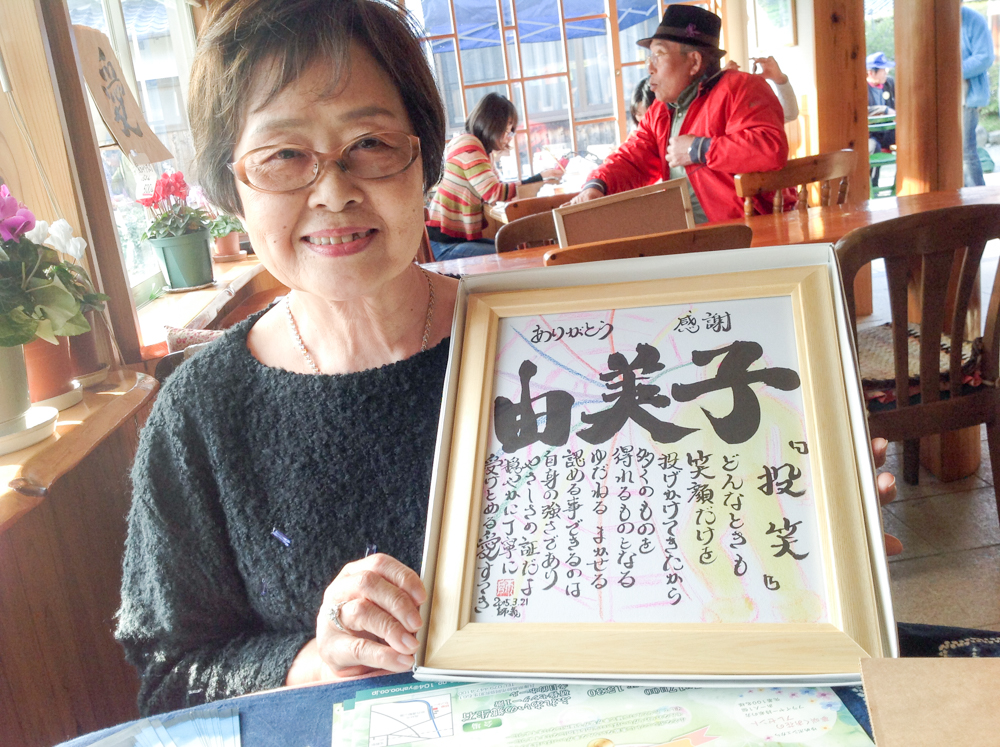 愛
ありがとう 感謝
由美子
「投笑」
どんなときも
笑顔だけを
投げかけてきたから
多くのものを
得れるものとなる
ゆだねる まかせる
認める事できるのは
自身の強さであり
やさしさの証だよ
穏やかに丁寧に
受けとめる愛すてき
2015.3.21
104@yahoo.co.jp
会場